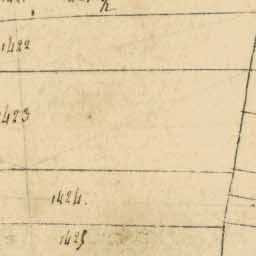 1422
1423
1424.
1425